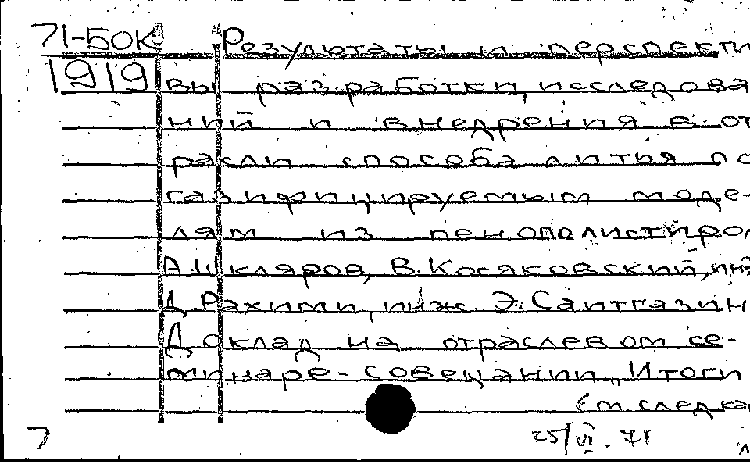 71-БОК Результаты и перспекти
1919 вы разработки, исследова
ний и внедрения в от
расли способа литья по
газифицируемым моде-
лям из пенополистирол
А. Шкляров, В. Косяковский, инж
Д. Рахими, инж Э. Саитгазин
Доклад на отраслевом се-
минаре-совещании „Итоги
См. след. ка
7 25/VI. 71